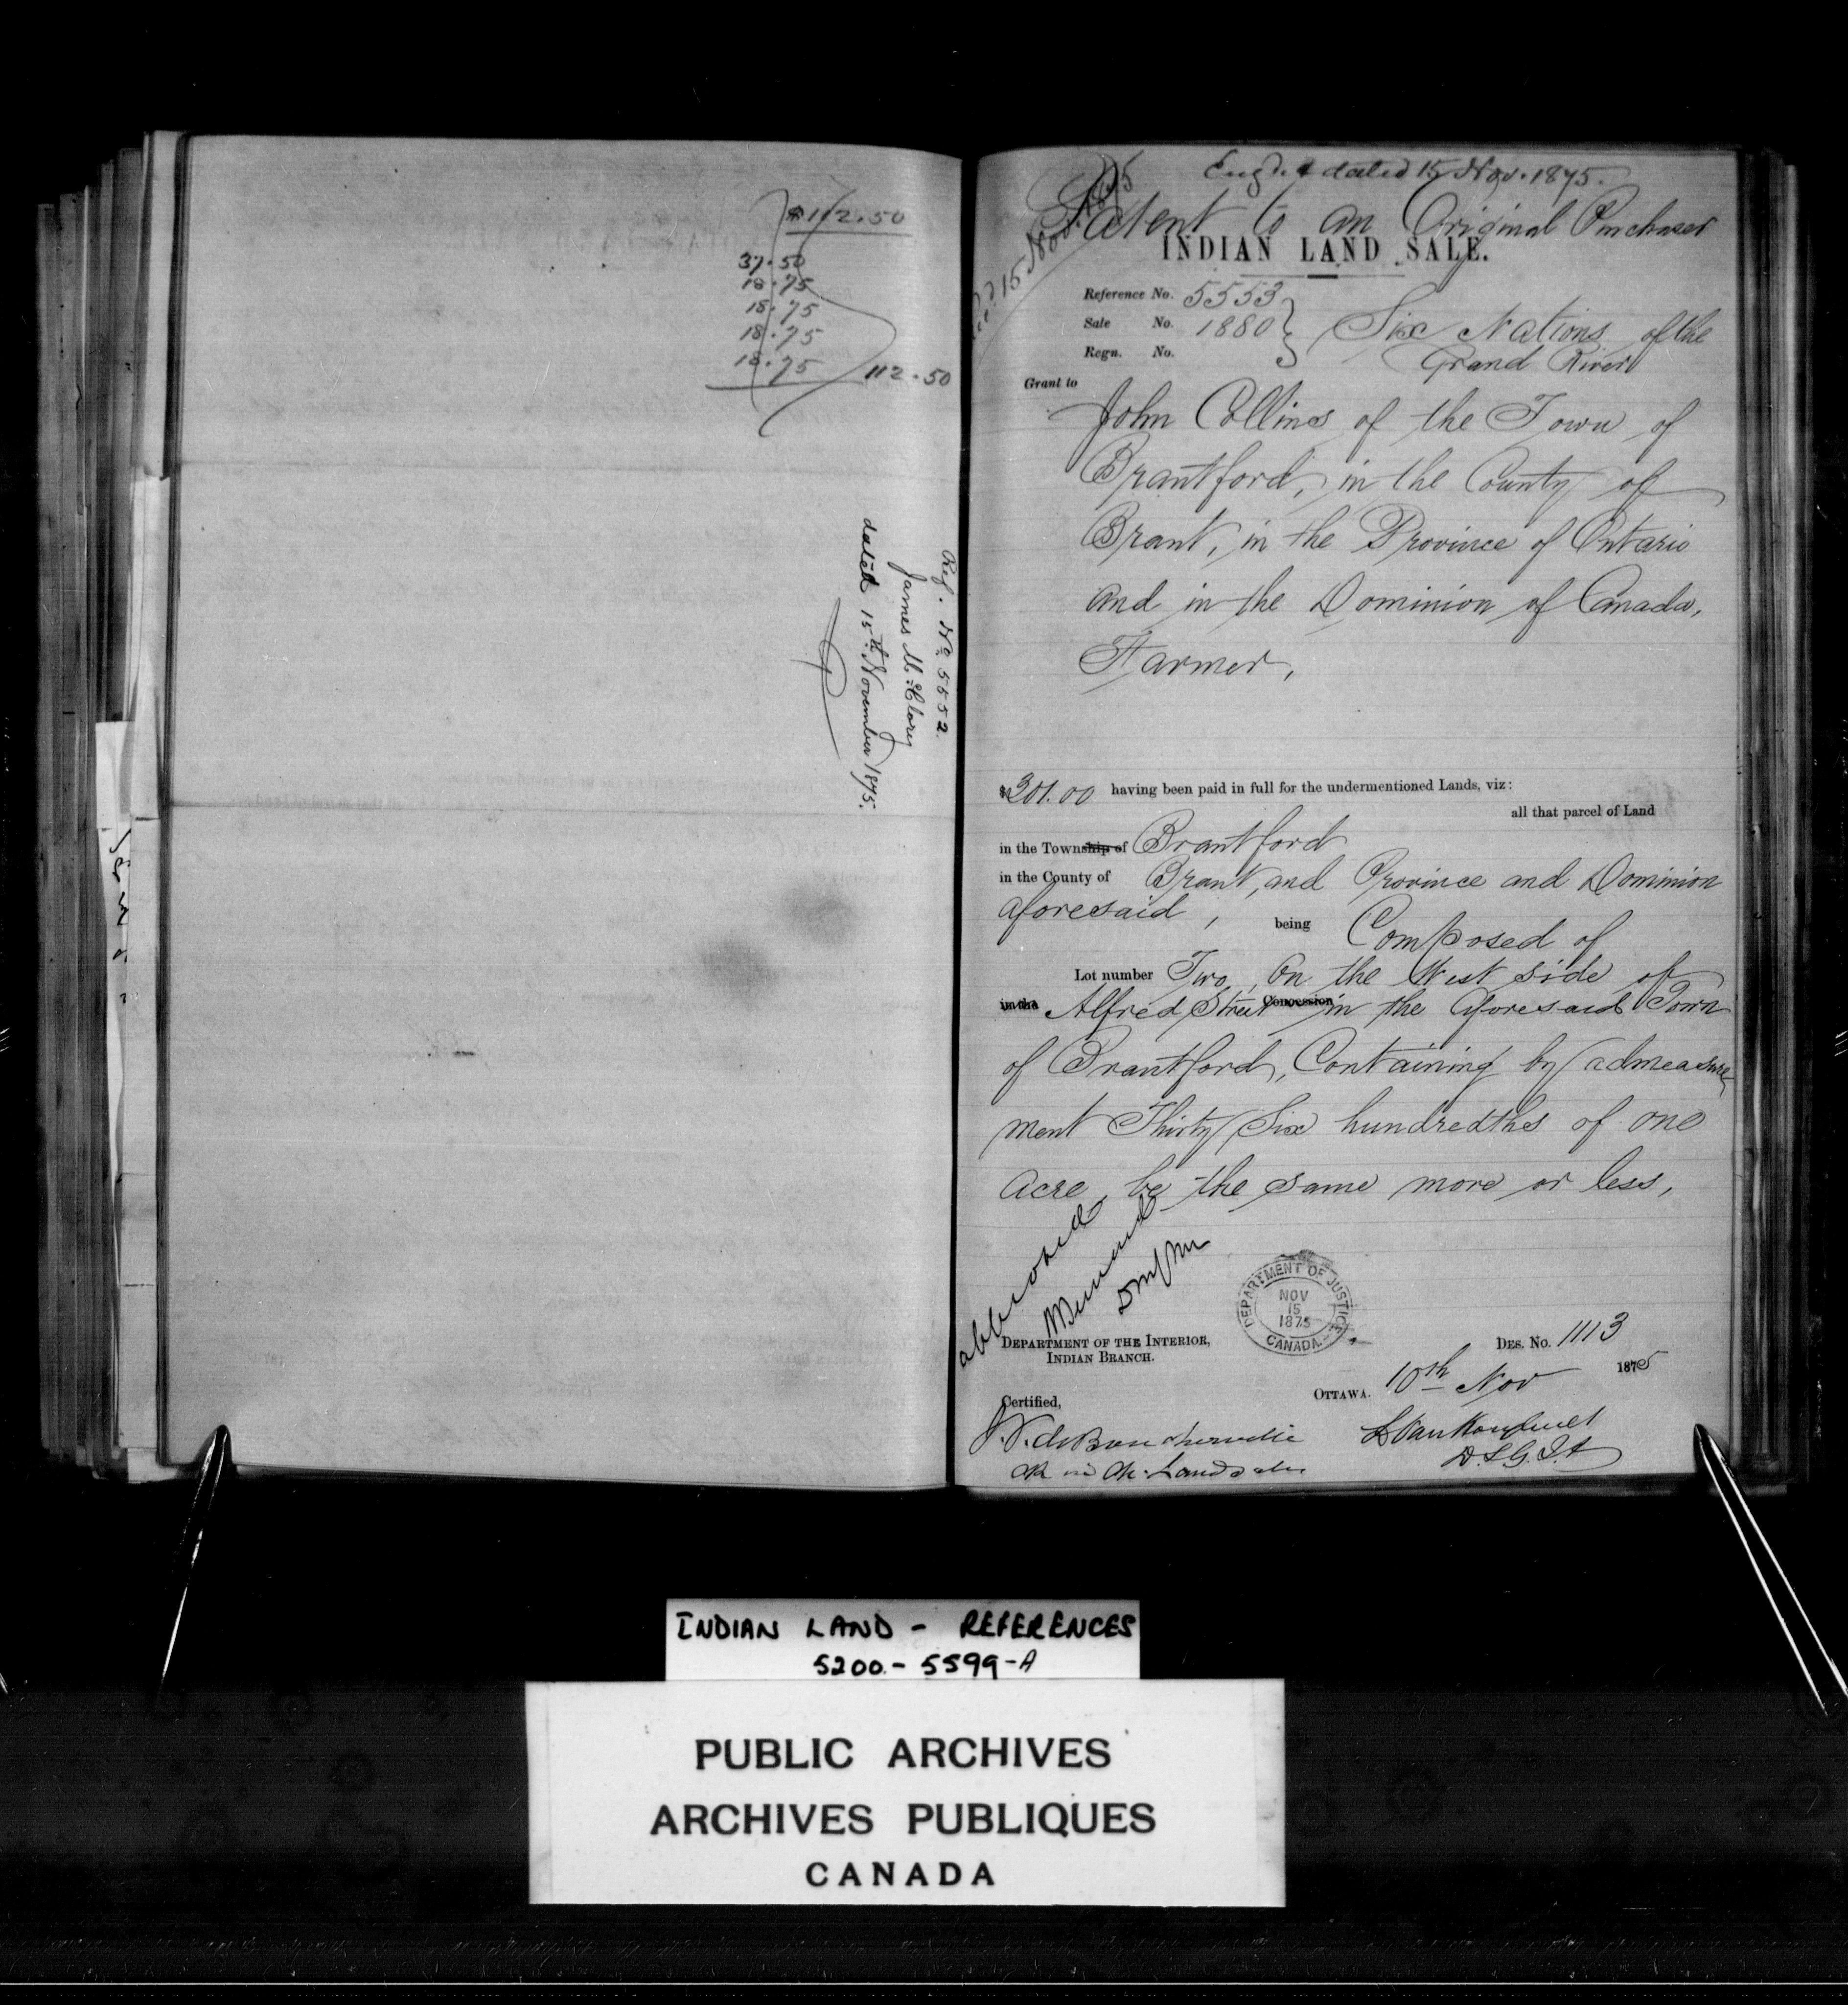 $112.50
37.50
18.75
18.75
18.75
18.75 112.50
Ref. No. 5552.
James McClory
dated 15th November 1875.
Eng'd. & dated 15 Nov. 1875.
15 Nov. 1875
Patent to an Original Purchaser
INDIAN LAND SALE.
Reference No. 5553
Sale No. 1880 Six Nations of the
Regn. No. Grand River
Grant to
John Collins of the Town of
Brantford, in the County of
Brant, in the Province of Ontario
and in the Dominion of Canada,
Farmer,
$301.00 having been paid in full for the undermentioned Lands, viz:
all that parcel of Land
in the Township of Brantford
in the County of Brant, and Province and Dominion
aforesaid, being Composed of
Lot number Two, On the West side of
in the Alfred Street Concession in the aforesaid Town
of Brantford, Containing by admeasure-
ment Thirty Six hundredths of one
acre be the same more or less,
DEPARTMENT OF JUSTICE
NOV
15
1875
CANADA
DEPARTMENT OF THE INTERIOR,
INDIAN BRANCH.
DES. NO. 1113
OTTAWA. 10th Nov 1875
Certified,
J.V. de Boucherville
Clk in Ch. Land Sales
L VanKoughnet
D.S.G.I.A
INDIAN LAND - REFERENCES
5200 - 5599-A
PUBLIC ARCHIVES
ARCHIVES PUBLIQUES
CANADA